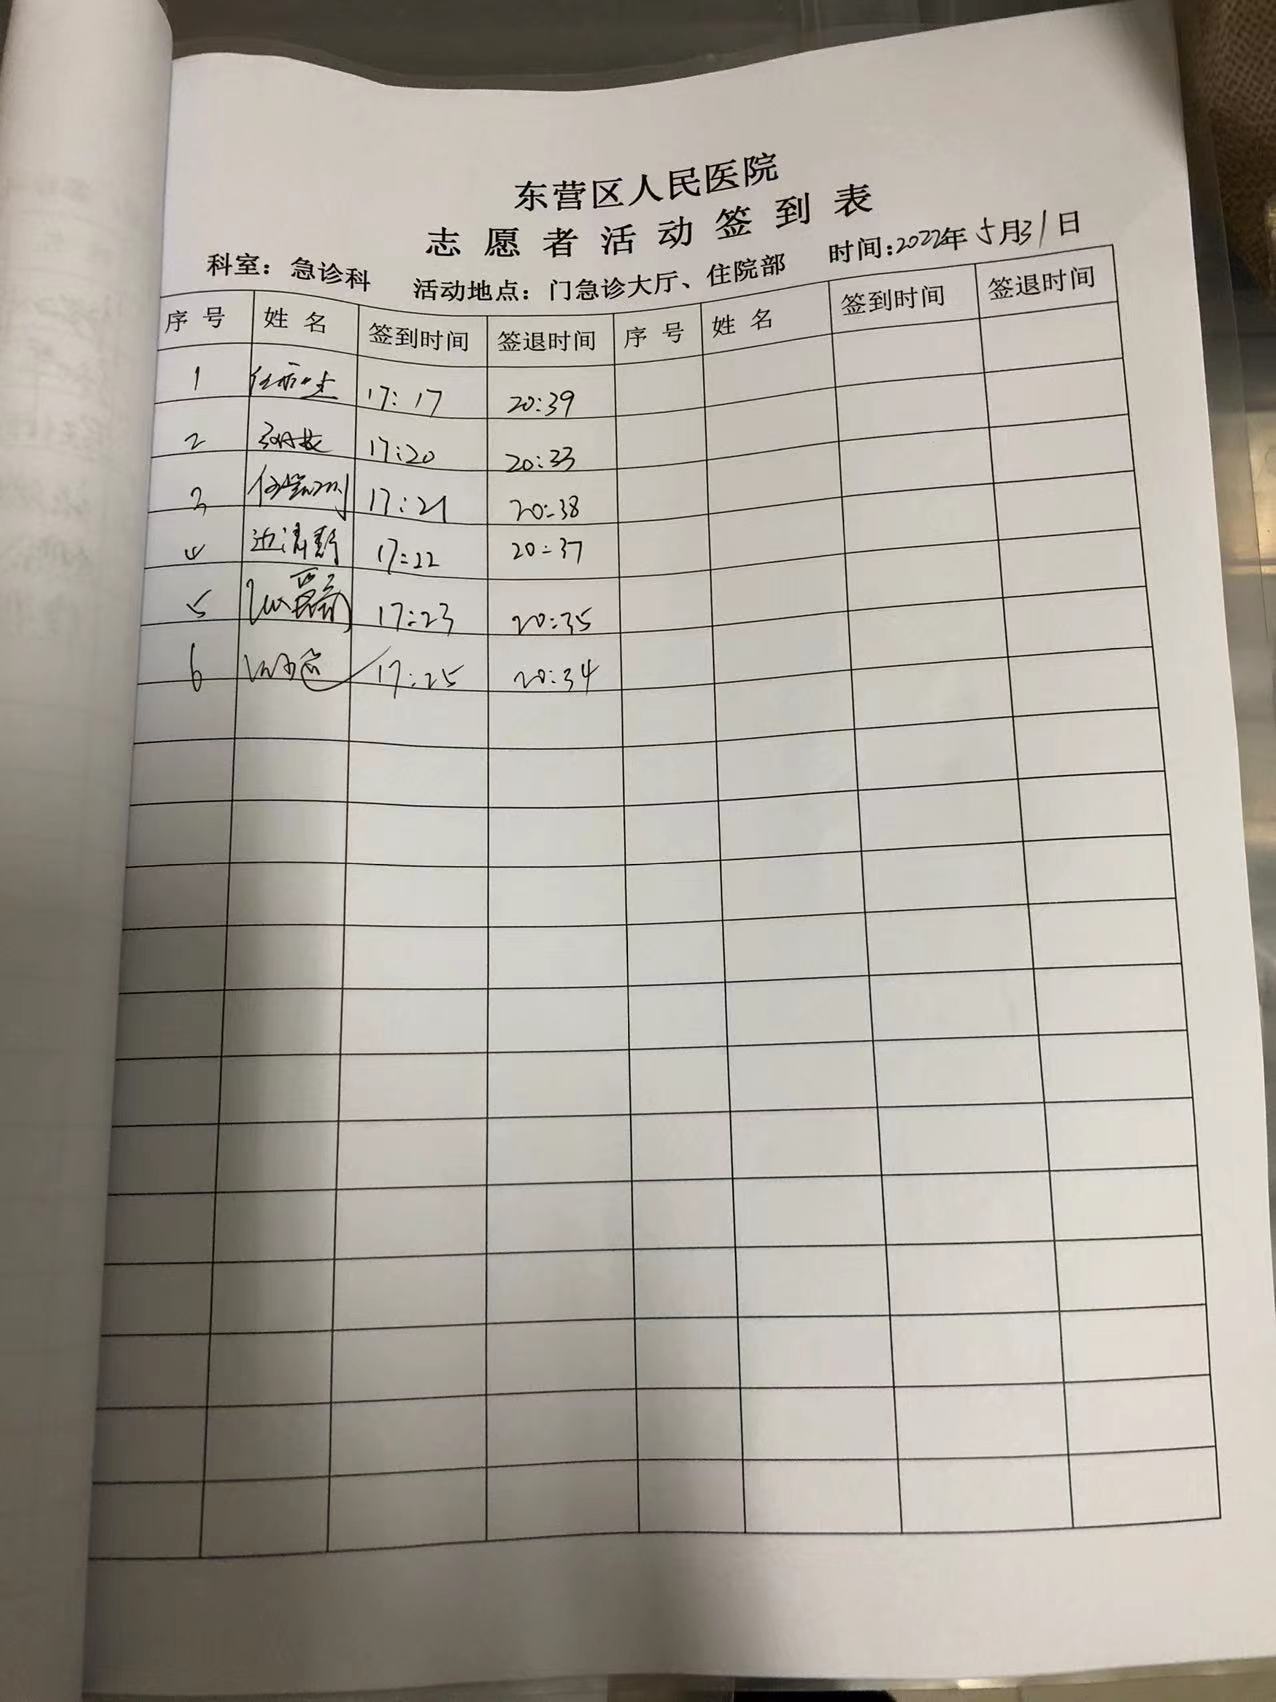 东营区人民医院
志愿者活动签到表
科室：急诊科 活动地点：门急诊大厅、住院部 时间:2022年5月31日
序号 姓名 签到时间 签退时间 序号 姓名 签到时间 签退时间
1 17:17 20:39
2 17:20 20:33
3 17:21 20:38
4 17:22 20:37
5 17:23 20:35
6 17:25 20:34